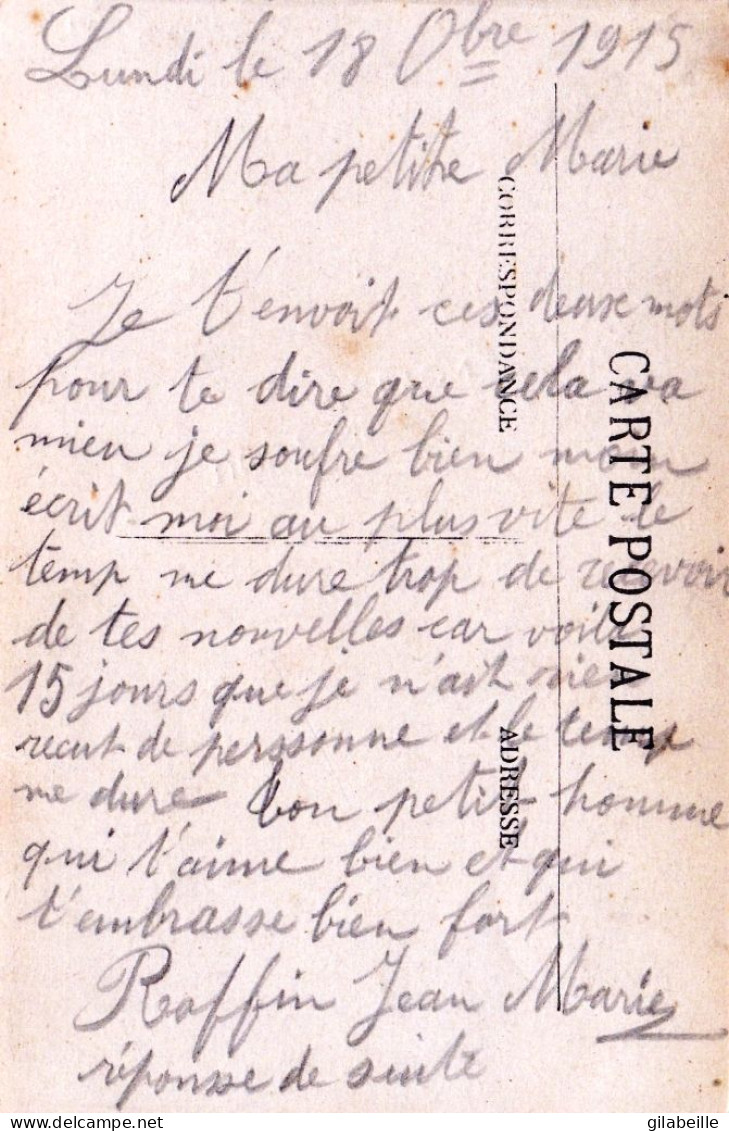 Lundi le 18 Obre 1915
Ma petite Marie
Je t'envoit ces deux mots
pour te dire que cela va
mieu je soufre bien moin
écrit moi au plus vite le
temp me dure trop de recevoir
de tes nouvelles car voila
15 jours que je n'ait rien
recut de perssonne et le temp
me dure ton petit homme
qui t'aime bien et qui
t'embrasse bien fort
Raffin Jean Marie
réponsse de suite
CORRESPONDANCE
ADRESSE
CARTE POSTALE
delcampe.net
gilabeille